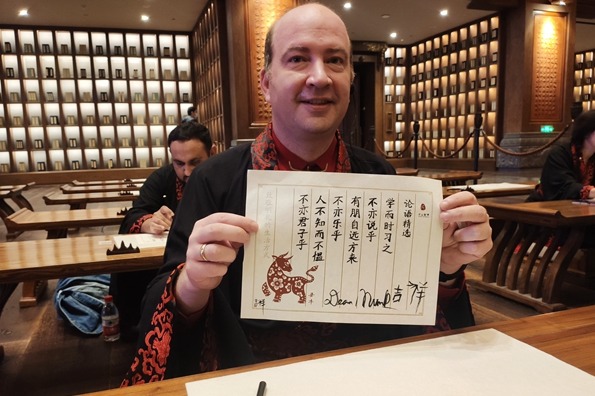 论语精选
学而时习之
不亦说乎
有朋自远方来
不亦乐乎
人不知而不愠
不亦君子乎
Dean
吉祥